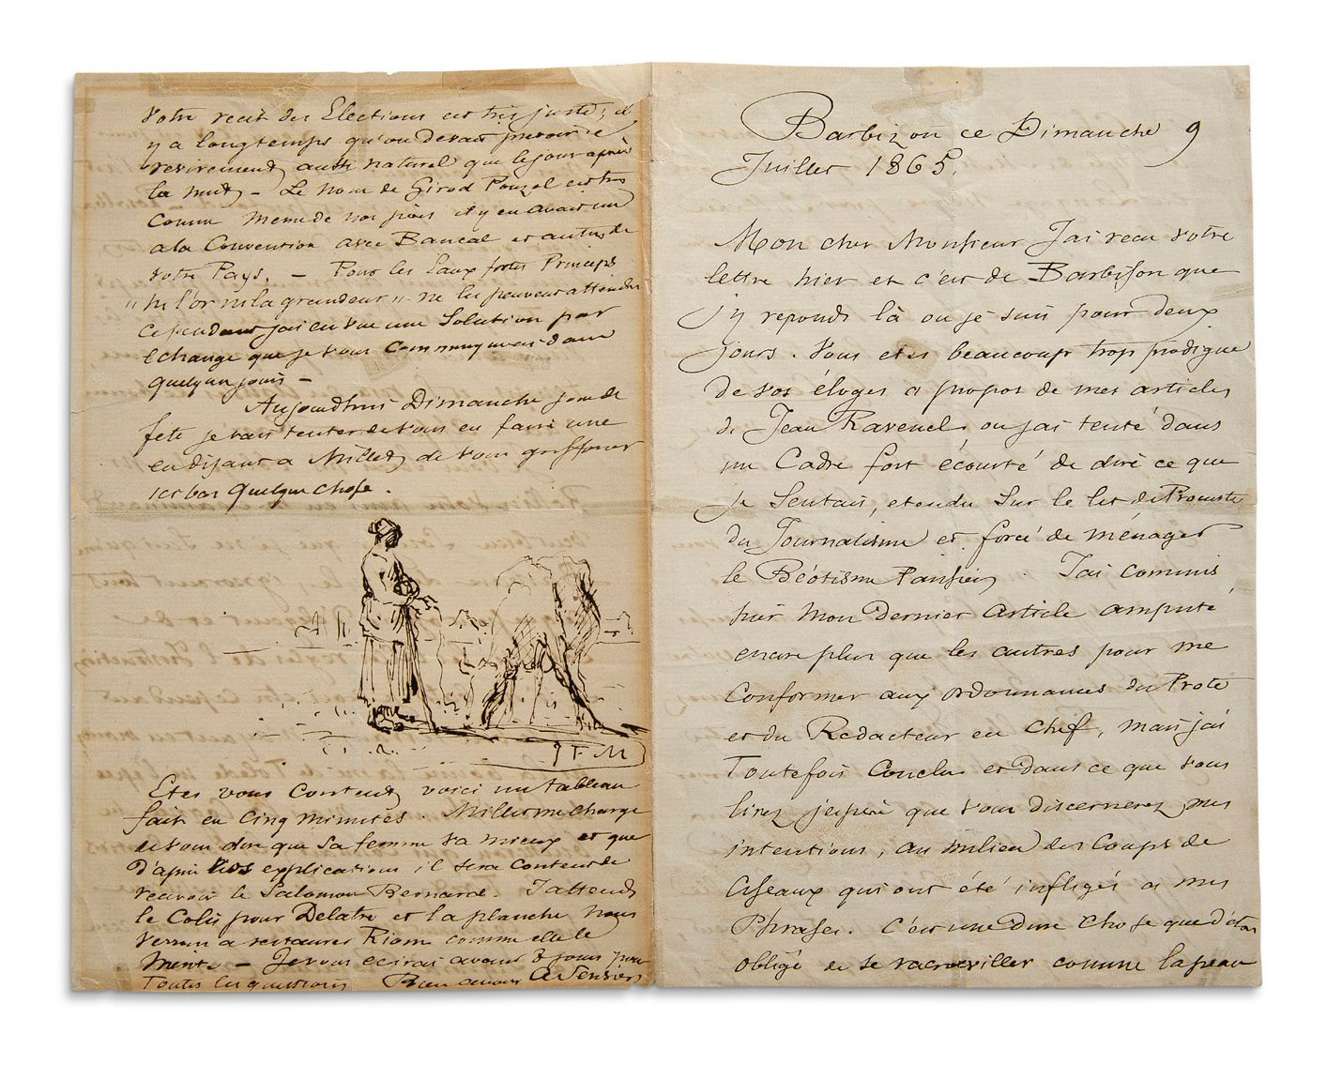 Barbizon ce Dimanche 9
Juillet 1865.
Mon cher Monsieur J'ai recu votre
lettre hier et c'est de Barbison que
j'y reponds là ou je suis pour deux
jours. Vous etes beaucoup trop prodigue
de vos éloges a propos de mes articles
de Jean Ravenel ou j'ai tenté dans
un Cadre fort écourté de dire ce que
je Sentais, etendu Sur le lit de Procuste
du Journalisme et forcé de ménager
le Béotisme Parisien. J'ai commis
hier mon Dernier Article amputé
encore plus que les autres pour me
Conformer aux ordonnances du Prote
et du Redacteur en chef, mais j'ai
Toutefois Conclu et dans ce que vous
lirez j'espère que vous discernerez mes
intentions, au milieu des Coups de
Ciseaux qui ont été infligés a mes
Phrases. C'est une Dure Chose que d'être
obligé de se racroqviller comme la peau
Votre recit des Elections est très juste; il
y a longtemps qu'on devait prevoir ce
revirement aussi naturel que le jour après
la nuit — Le nom de Girod Pouzol est très
Connu Meme de nos pères il y en avait un
a la Convention avec Bancal et autres de
votre Pays. — Pour les Eaux fortes Principes
"ni l'or ni la grandeur" ne les peuvent attendre
Cependant j'ai en vue une Solution par
Echange que je vous Communiquerai dans
quelques jours —
Aujourdhui Dimanche jour de
fete je vais tenter de vous en faire une
en disant a Millet de vous griffonner
ici bas Quelque chose.
J F M
Etes vous Content voici un tableau
fait en Cinq minutes. Millet me charge
de vous dire que Sa femme va mieux et que
d'après vos explications il sera Content de
recevoir le Salomon Bernard. J'attends
le Colis pour Delatre et la planche nous
verrons a restaurer Riom comme elle le
merite — Je vous ecrirai avant 8 jours pour
Toutes les questions Bien a vous A Sensier